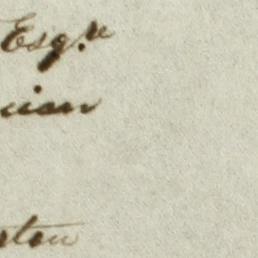 Esqr.
cian
ston